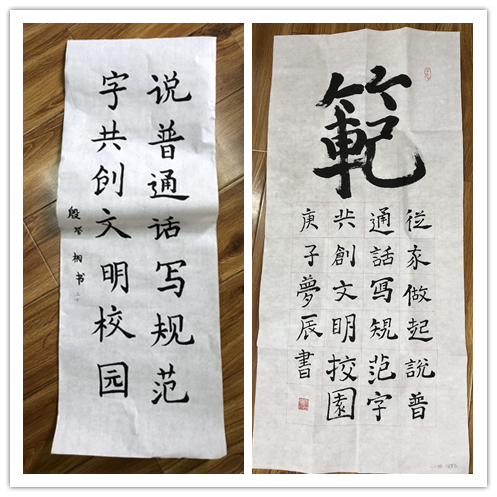 说普通话写规范
字共创文明校园
殷 桐书
範
從家做起說普
通話寫規范字
共創文明校園
庚子夢辰書